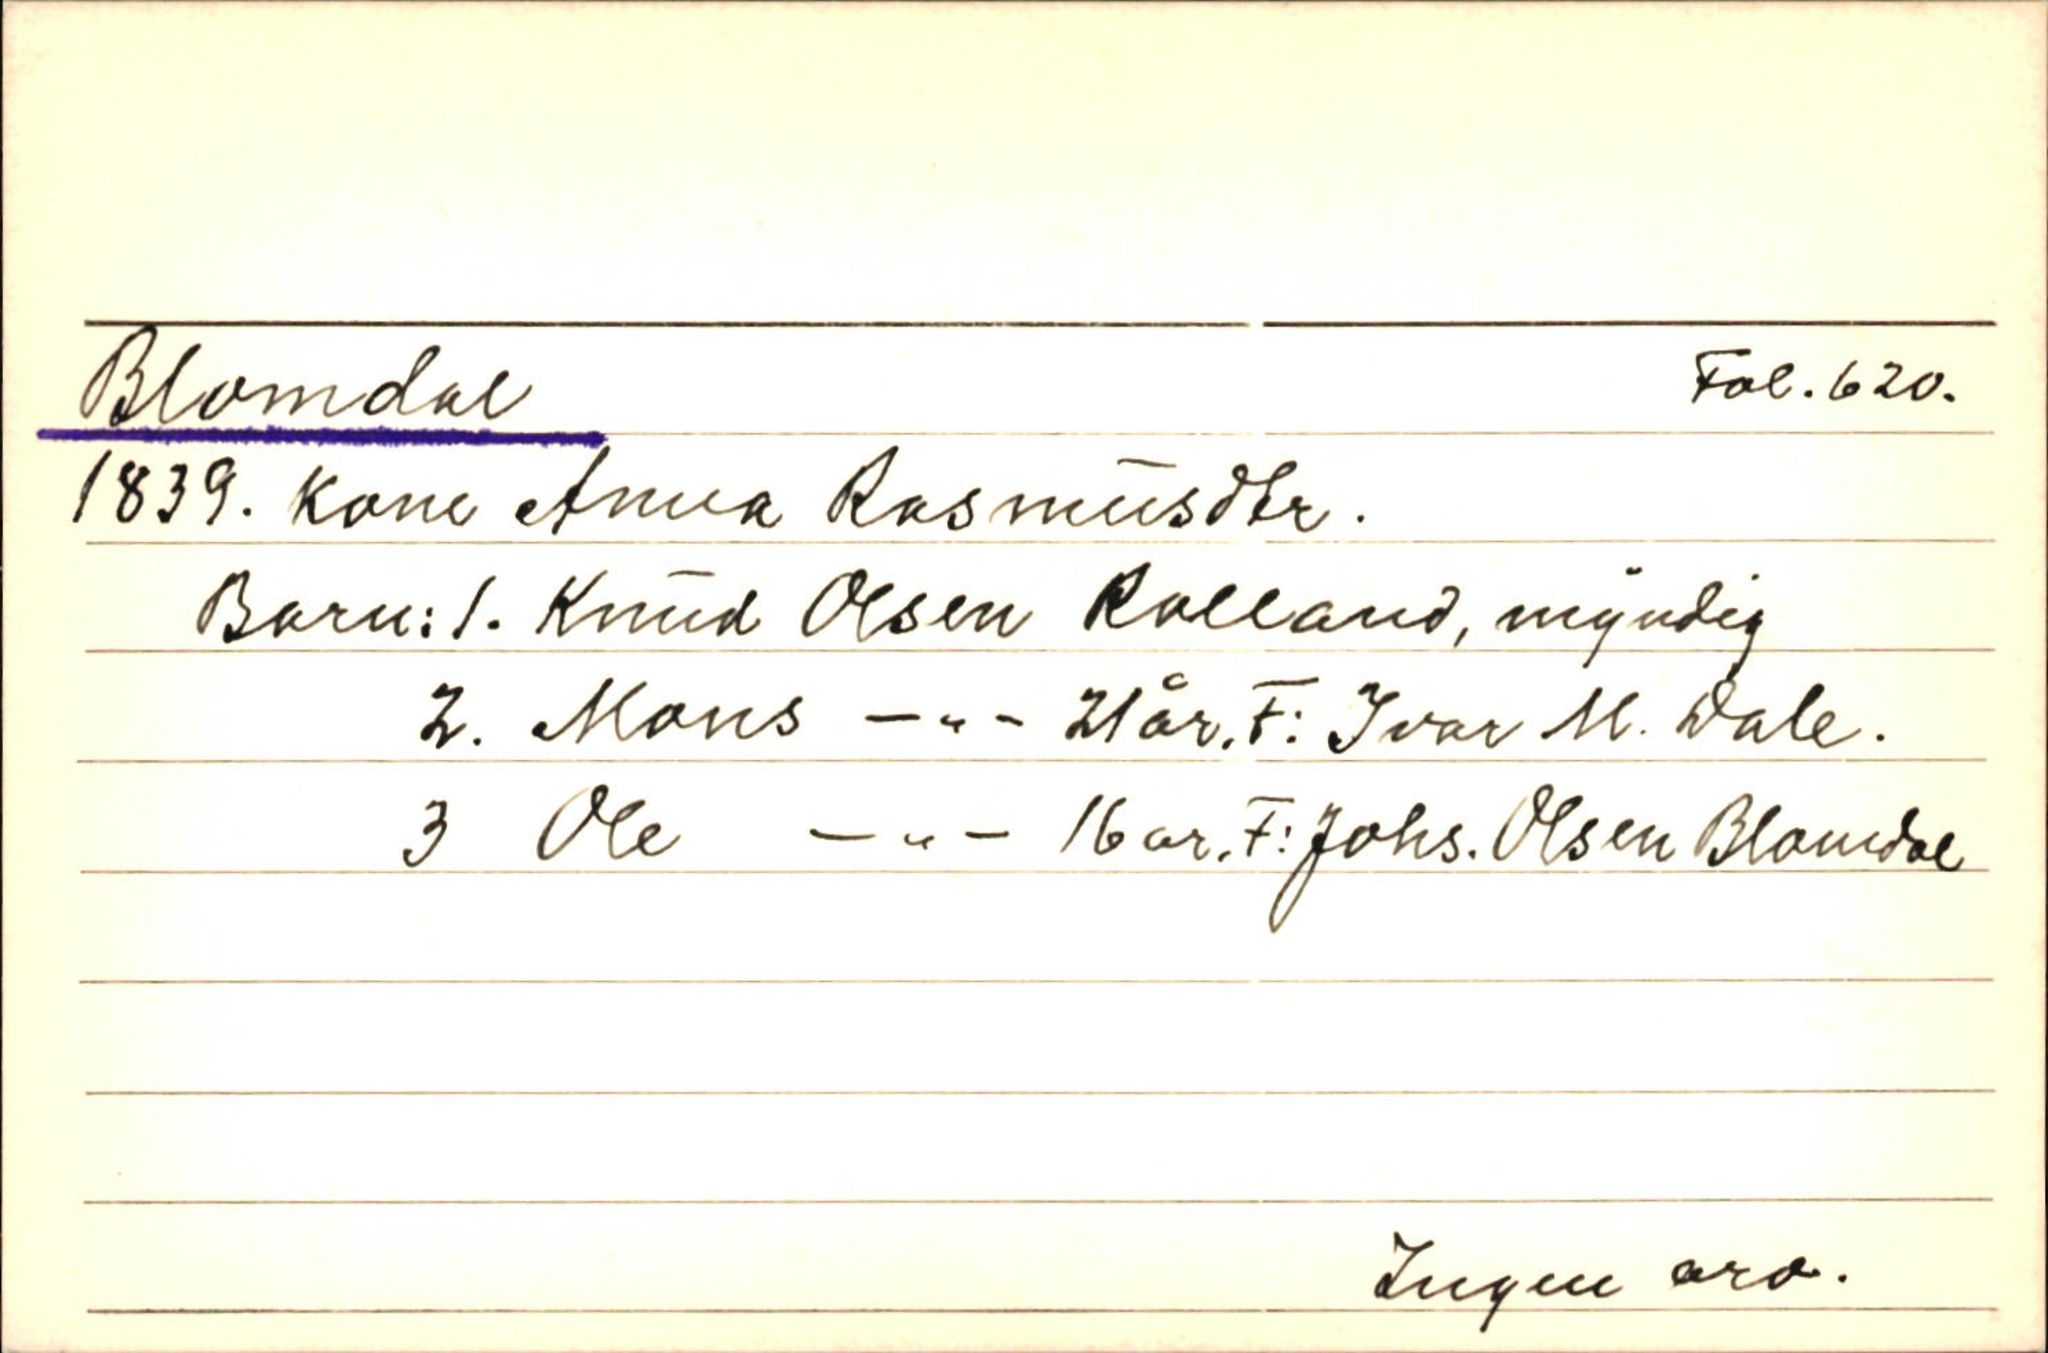 Blomdal Fol. 620.
1839. Kone Anna Rasmusdtr.
Barn: 1. Knud Olsen Rolland, myndig
2. Mons —"— 21 år. F: Ivar M. Dale.
3 Ole —"— 16 ar. F: Johs. Olsen Blomdal
Ingen arv.